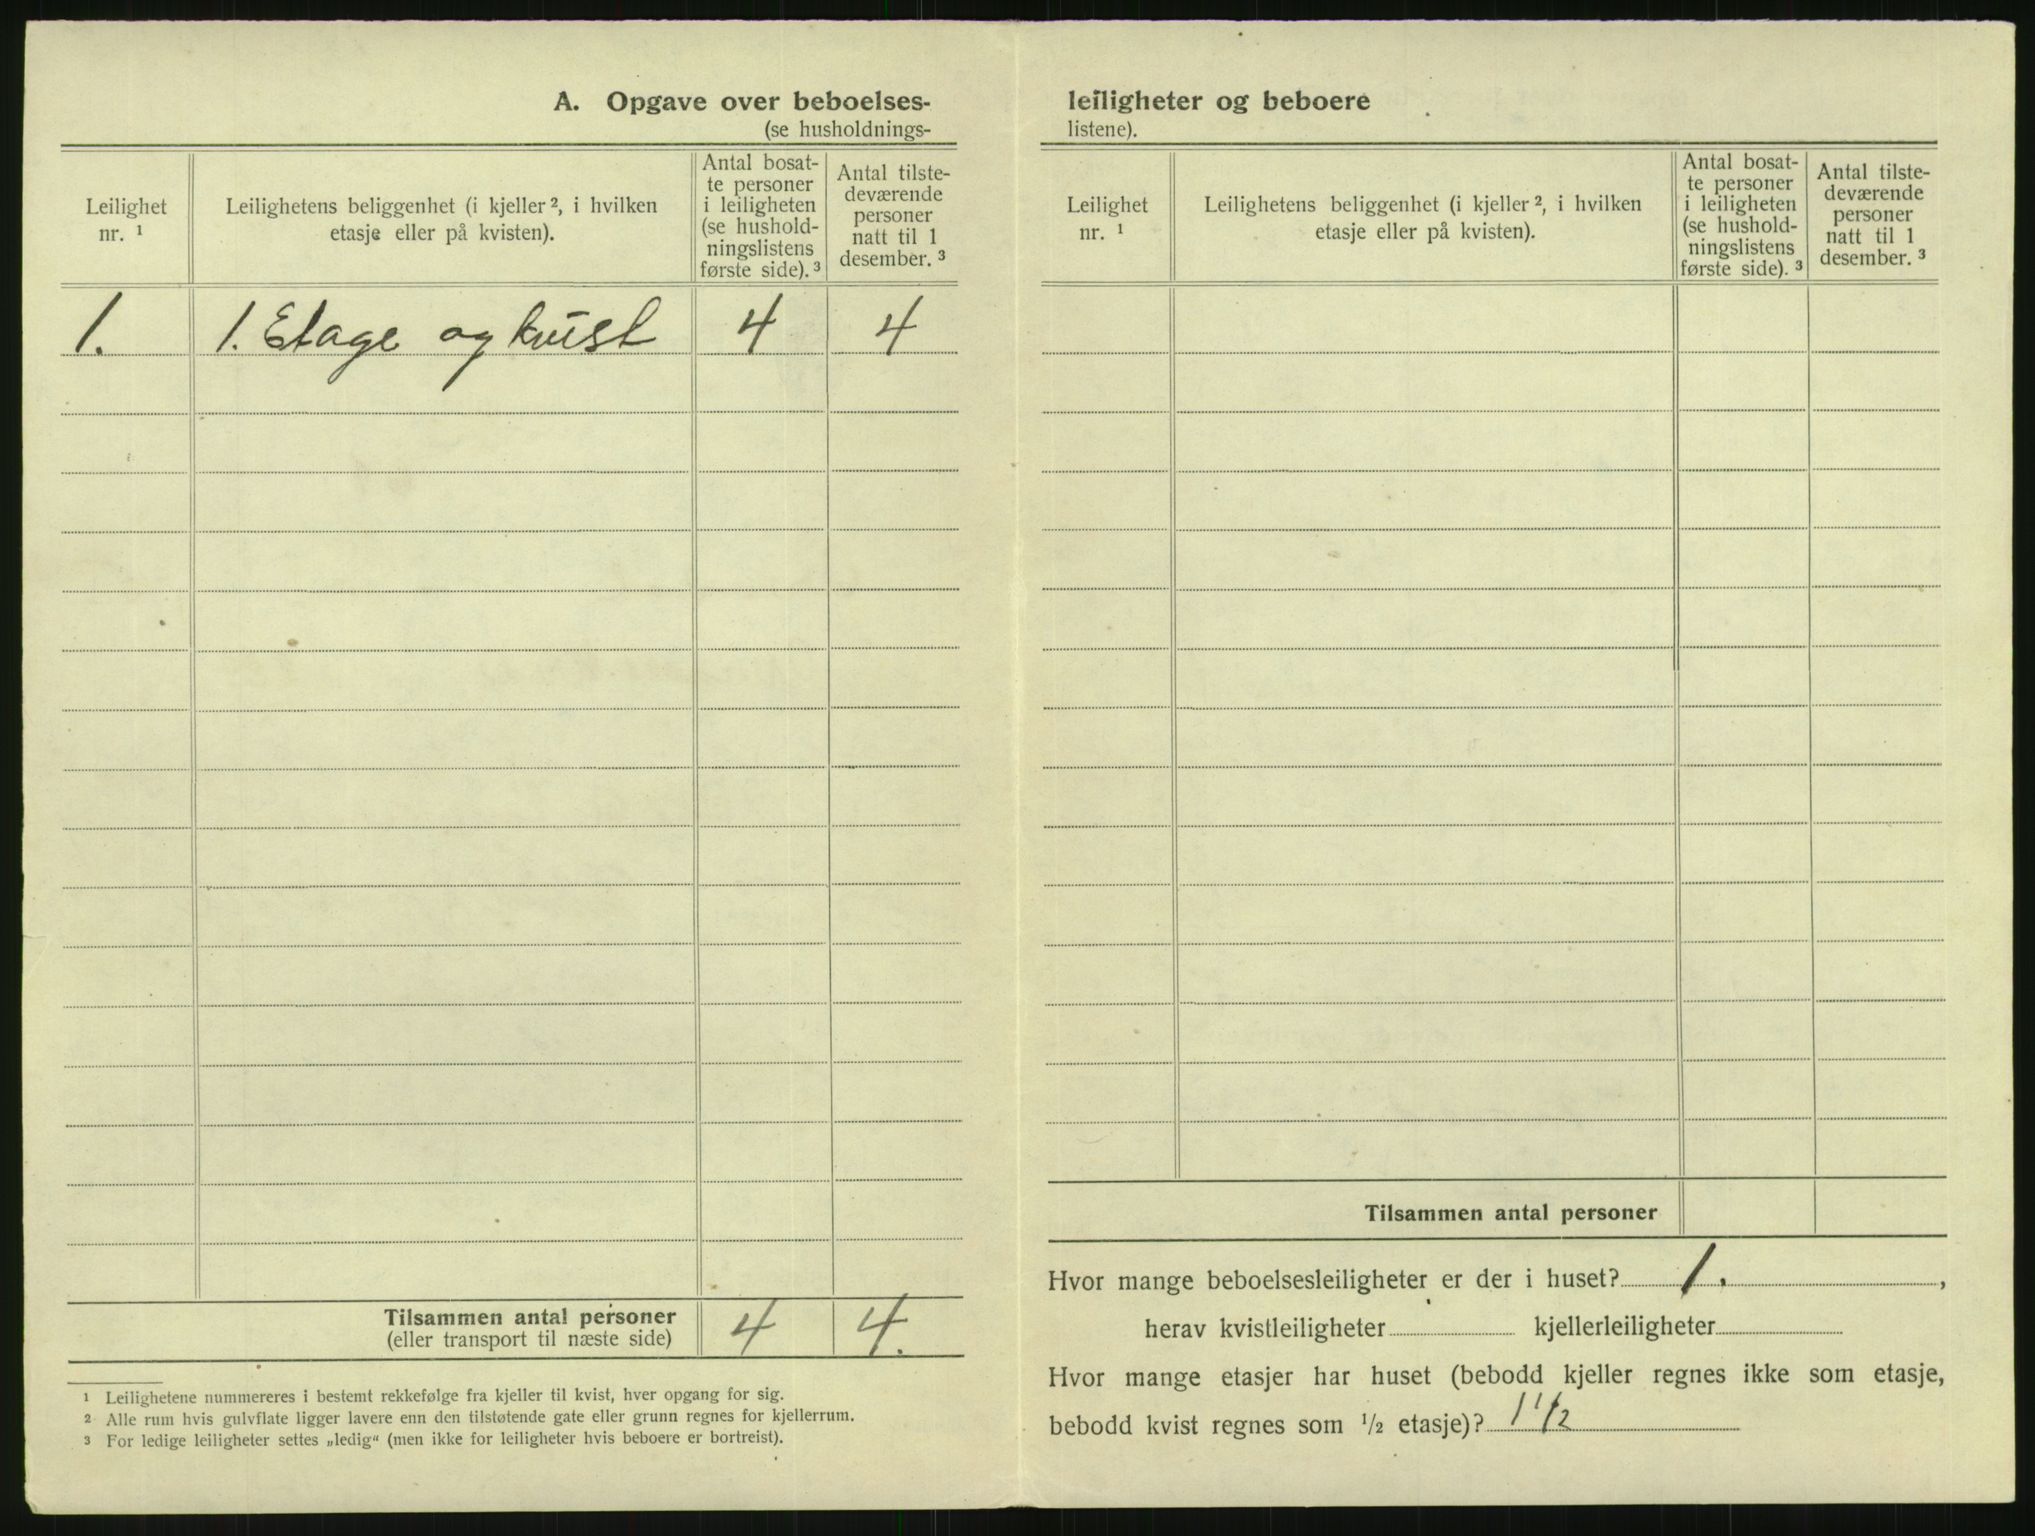 A. Opgave over beboelses-
(se husholdnings-
Leilighet
nr. ¹
Leilighetens beliggenhet (i kjeller ², i hvilken
etasje eller på kvisten).
Antal bosat-
te personer
i leiligheten
(se hushold-
ningslistens
første side). ³
Antal tilste-
deværende
personer
natt til 1
desember. ³
1. 1. Etage og kvist 4 4
Tilsammen antal personer 4 4.
(eller transport til næste side)
¹ Leilighetene nummereres i bestemt rekkefølge fra kjeller til kvist, hver opgang for sig.
² Alle rum hvis gulvflate ligger lavere enn den tilstøtende gate eller grunn regnes for kjellerrum.
³ For ledige leiligheter settes „ledig“ (men ikke for leiligheter hvis beboere er bortreist).
leiligheter og beboere
listene).
Leilighet
nr. ¹
Leilighetens beliggenhet (i kjeller ², i hvilken
etasje eller på kvisten).
Antal bosat-
te personer
i leiligheten
(se hushold-
ningslistens
første side). ³
Antal tilste-
deværende
personer
natt til 1
desember. ³
Tilsammen antal personer
Hvor mange beboelsesleiligheter er der i huset? 1. ,
herav kvistleiligheter kjellerleiligheter
Hvor mange etasjer har huset (bebodd kjeller regnes ikke som etasje,
bebodd kvist regnes som ½ etasje)? 1 ½